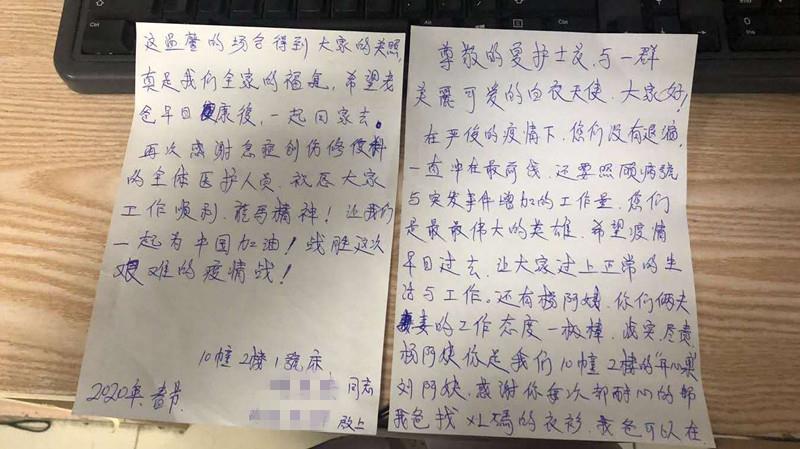 尊敬的夏护士长与一群
美丽可爱的白衣天使、大家好!
在严俊的疫情下、您们没有退缩,
一直冲在最前线、还要照顾病號
与突发事件增加的工作量、您们
是最最伟大的英雄、希望疫情
早日过去、让大家过上正常的生
活与工作。还有杨阿姨、你们俩夫
妻的工作态度一极棒、诚实、尽责
杨阿姨你是我们10幢2楼的开心果
刘阿姨、感谢你每次都耐心的帮
我爸找 XL碼的衣衫、我爸可以在
这温馨的场合得到大家的关照,
真是我们全家的福氣、希望老
爸早日康復、一起回家去。
再次感谢急症创伤修復科
的全体医护人员、祝愿大家
工作顺利、龍馬精神! 让我们
一起为中国加油! 战胜这次
艰难的疫情战!
10幢2楼1號床
同志
2020年春节
敬上